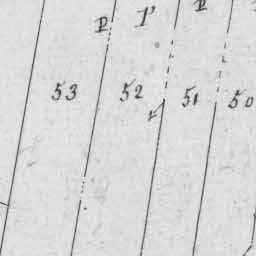 P P P
53 52 51 50